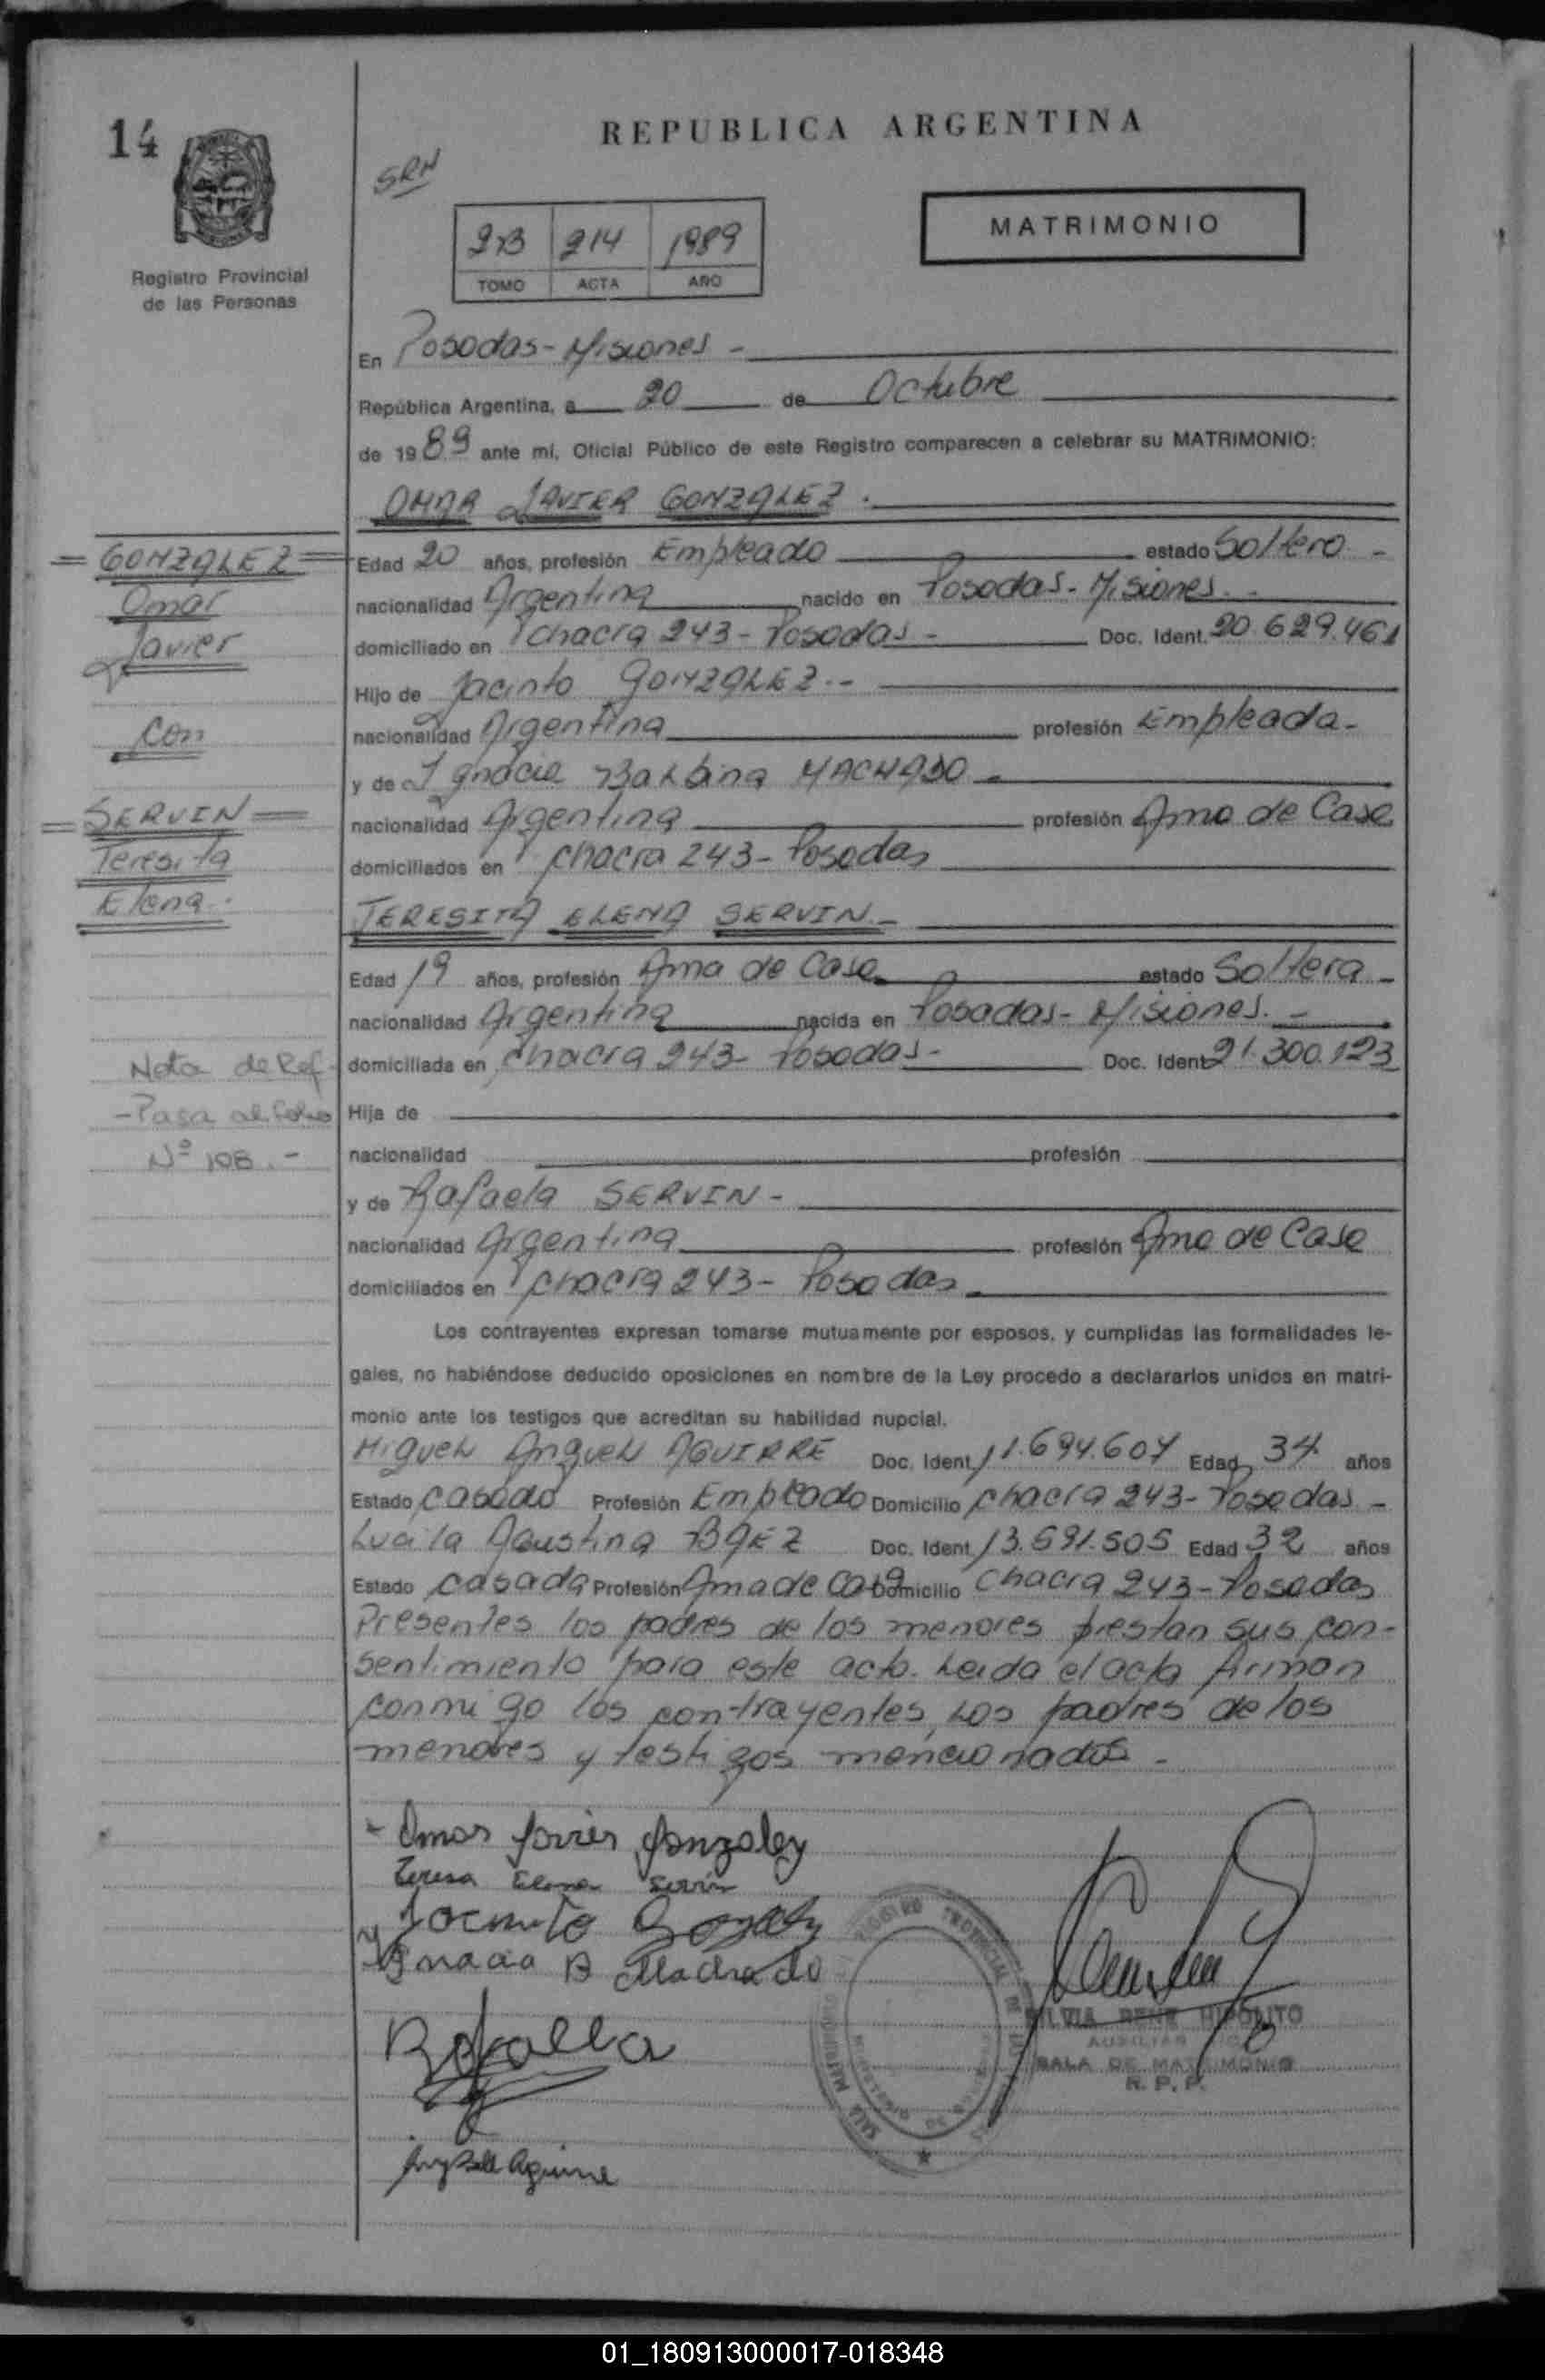 14
REPUBLICA ARGENTINA
SRH
MATRIMONIO
Registro Provincial
de las Personas
2º3 214 1989
TOMO ACTA AÑO
En Posadas - Misiones -
República Argentina, a 20 de Octubre
de 1989 ante mí, Oficial Público de este Registro comparecen a celebrar su MATRIMONIO:
OMAR JAVIER GONZALEZ.
= GONZALEZ =
Omar
Javier
con
= SERVIN =
Teresita
Elena.
Nota de Ref.
- Pasa al folio
Nº 108. -
Edad 20 años, profesión Empleado estado Soltero -
nacionalidad Argentina nacido en Posadas - Misiones. -
domiciliado en Chacra 243 - Posadas - Doc. Ident. 20.629.461
Hijo de Jacinto GONZALEZ. -
nacionalidad Argentina profesión Empleada -
y de Ignacia Balbina MACHADO -
nacionalidad Argentina profesión Ama de Casa
domiciliados en Chacra 243 - Posadas
TERESITA ELENA SERVIN. -
Edad 19 años, profesión Ama de Casa estado Soltera -
nacionalidad Argentina nacida en Posadas - Misiones. -
domiciliada en Chacra 243 - Posadas - Doc. Ident 21.300.123
Hija de
nacionalidad profesión
y de Rafaela SERVIN -
nacionalidad Argentina profesión Ama de Casa
domiciliados en Chacra 243 - Posadas
Los contrayentes expresan tomarse mutuamente por esposos, y cumplidas las formalidades le-
gales, no habiéndose deducido oposiciones en nombre de la Ley procedo a declararlos unidos en matri-
monio ante los testigos que acreditan su habilidad nupcial.
Miguel Angel AGUIRRE Doc. Ident. 11.694.607 Edad 34 años
Estado casado Profesión Empleado Domicilio Chacra 243 - Posadas -
Lucila Agustina BAEZ Doc. Ident. 13.591.505 Edad 32 años
Estado casada Profesión Ama de Casa Domicilio Chacra 243 - Posadas
Presentes los padres de los menores prestan sus con-
sentimiento para este acto. Leida el acta firman
conmigo los contrayentes, los padres de los
menores y testigos mencionados -
Omar Javier Gonzalez
Teresa Elena Servin
Jacinto Gonzalez
Ignacia B Machado
Rafaela
Aguirre
REGISTRO PROVINCIAL DE
SALA MATRIMONIOS
SILVIA RENE HIPOLITO
AUXILIAR
SALA DE MATRIMONIO
R. P. P.
01_180913000017-018348